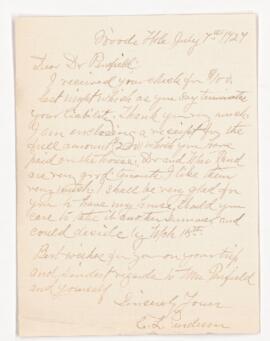 Woods Hole July 7th 1927
Dear Dr Penfield:
I received your check for $100.
last night which as you say terminates
your liability. Thank you very much.
I am enclosing a receipt for the
full amount which you have
paid on the house. Dr and Mrs
are very good tenants I like them
very much. I shall be very glad for
you to have my house, should you
care to take it another summer and
could decide by
Best wishes for you on your trip
and kindest regards to Mrs Penfield
and yourself
Sincerely Yours
C. L.